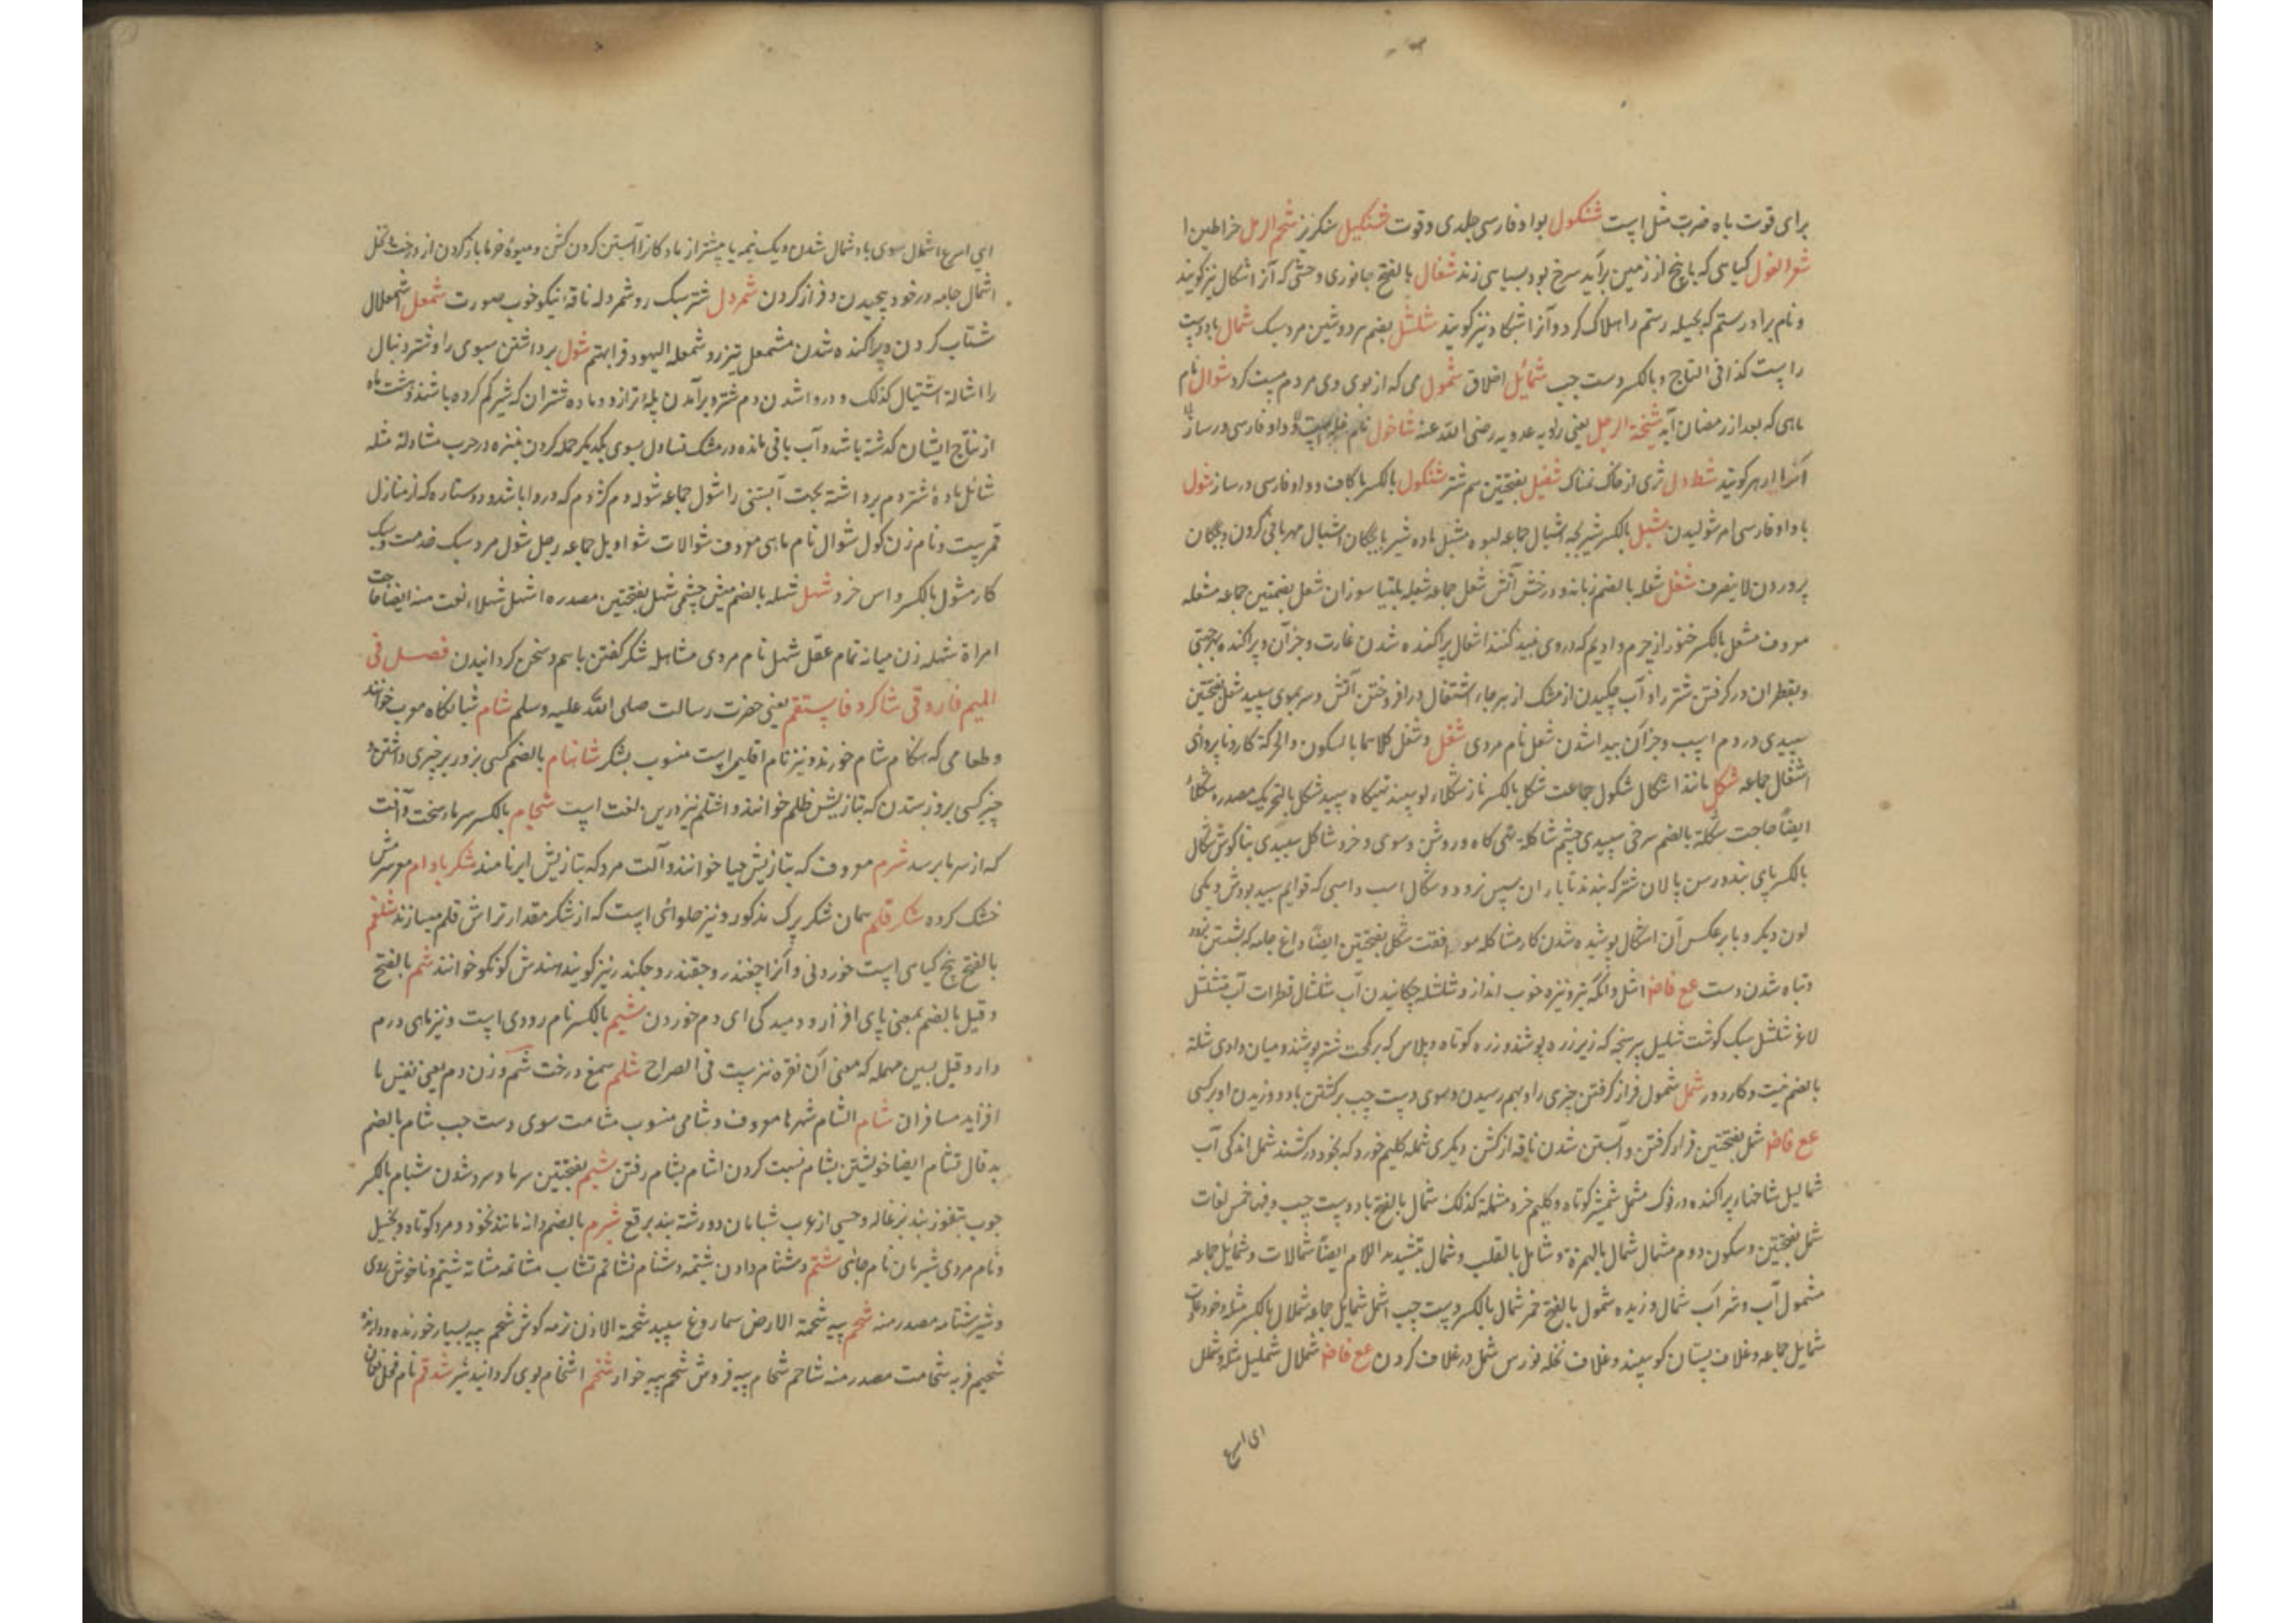 برای قوت باه ضرب مثل است شنکول بواو فارسی جلدی و قوت شنکیل سنکزیز شحم الرمل خراطین
شعر الغول کیاهی که با پنج از زمین برآید سرخ بود بسیاهی زند شغال بالفتح جانوری وحشی که آنرا شکال نیز کویند
و نام برادر رستم که بحیله رستم را هلاک کرد و آنرا شکاد نیز کویند شلشل بضم هر دو شین مرد سبک شمال باد دست
راست کذا فی التاج و بالکسر دست چپ شمائل اخلاق شمول می که از بوی وی مردم مست کرد شوال نام
ماهی که بعد از رمضان آید شیخة الرجل یعنی رابعه عدویه رضی الله عنه شاخول نام و واو فارسی و رساز
کویند شطا دل تری از خاک نمناک شفیل بفتحتین سم شتر شنکول بالکسر با کاف و واو فارسی و رساز شول
با واو فارسی امر شولیدن شبل بالکسر شیر بچه اشبال جماعه لبوه مشبل ماده شیر با بچکان اشبال مهربانی کردن و بچکان
پروردن لا ینصرف شعل شعله بالضم زبانه و درخش آتش شعل جماعه شعیله پلیتها سوزان شعل بضمتین جماعه مشعله
معروف مشعل بالکسر خنور از چرم و ادیم که در وی نبیذ کنند اشعال پراکنده شدن غارت و جز آن و پراکنده بهر جهتی
و بقطران در کرفتن شتر را و آب چکیدن از مشک از هر جاء اشتعال در افروختن آتش و سر بموی سپید شعل بفتحتین
سپیدی در دم اسپ و جز آن پیدا شدن شعل نام مردی شغل و شغل کلاهما بالسکون والحرکة کار و ناپروائی
اشغال جماعه شکل مانند اشکال شکول جماعت شکل بالکسر ناز شکلاء کوسپند تهیکاه سپید شکل بالتحریک مصدره شکلاء
ایضاً حاجت شکلة بالضم سرخی سپیدی چشم شاکلة تهی کاه و روش و سوی و خرد شاکل سپیدی بناکوش شکال
بالکسر پای بند و رسن پالان شتر که بندند تا باران سپس نرود و شکال اسب و اسبی که قوایم سپید بودش و یکی
لون دیکر و یا بر عکس آن اشکال پوشیده شدن کار مشاکله موافقت شکل بفتحتین ایضاً داغ جامه که بشستن نرود
و تباه شدن دست عع فاض انشل وانکه تیر و نیزه خوب انداز و شلشله چکانیدن آب شلشال قطرات آب متشلشل
لاغر شلشل سبک کوشت شلیل پرنجه که زیر زره پوشند و زره کوتاه و پلاس که بر کحت شتر پوشند و میان وادی شلة
بالضم نیت و کار دور شمل شمول فراز کرفتن چیزی را و بهم رسیدن و سوی دست چپ برکشتن باد و وزیدن او بر کسی
عع فاض شمل بفتحتین فرار کرفتن و آبستن شدن ناقه از کشن دیکری شمله کلیم خورد که بخود در کشند شمل اندکی آب
شمالیل شاخهاء پراکنده در فوک مشمل شمشیر کوتاه و کلیم خرد مشملة کذلک شمال بالفتح باد دست چپ و فیها خمس لغات
شمل بفتحتین و سکون دوم مشمال شمال بالهمزة و شامل بالقلب و شمال بتشدید اللام ایضاً شمالات و شمائل جماعه
مشمول آب و شراب شمال وزیده شمول بالفتح خمر شمال بالکسر دست چپ اشمل شمایل جماعه شملال بالکسر مثله و خود عادت
شمایل جماعه و غلاف پستان کوسپند و غلاف نخله نورس شمل در غلاف کردن عع فاض شملال شملیل مثله و شملل
ای اسرع
ای اسرع اشمال سوی باد شمال شدن و یک نیمه یا بیشتر از مادکانرا آبستن کردن کشن و میوهٔ خرما باز کردن از درخت نخل
اشمال جامه در خود پیچیدن و فراز کردن شمردل شتر سبک رو شمردله ناقهٔ نیکو خوب صورت شمعل اشمعلال
شتاب کردن و پراکنده شدن مشمعل تیز رو شمعله الیهود قراءتهم شول برداشتن سبوی را و شتر دنبال
را اشالة اشتیال کذلک و دروا شدن دم شتر و برآمدن پلهٔ ترازو و ماده شتران که شیر کم کرده باشند و هشت ماه
از نتاج ایشان کذشته باشد و آب باقی مانده در مشک تشاول بسوی یکدیکر حمله کردن بنیزه در حرب مشاوله مثله
شائل مادهٔ شتر دم برداشته بجهت آبستنی را شول جماعه شوله دم کژدم که دروا باشد و دو ستاره که از منازل
قمر یست و نام زن کول شوال نام ماهی معروف شوالات شواویل جماعه رجل شول مرد سبک خدمت و سبک
کار مشول بالکسر داس خرد شهل شهله بالضم میش چشمی شهل بفتحتین مصدره اشهل شهلاء نعت منه ایضاً حاجت
امراة شهله زن میانه تمام عقل شهل نام مردی مشاهله شکر کفتن باهم و سخن کردانیدن فصـل فی
المیم فاروقی شاکرد فاستقم یعنی حضرت رسالت صلی الله علیه وسلم شام شبانکاه معرب خوانند
و طعامی که هنکام شام خورند و نیز نام اقلیم است منسوب بشکر شاهنام بالضم کسی بزور بر چیزی داشتن و
چیز کسی بزور ستدن که بتازیش ظلم خوانند و اشتلم نیز درین لغت است شجام بالکسر سرما سخت و آفت
که از سرما برسد شرم معروف که بتازیش حیا خوانند و آلت مرد که بتازیش ایر نامند شکر بادام
خشک کرده شکر قلم همان شکر برک مذکور و نیز حلوائی است که از شکر مقدار تراش قلم میسازند شلغم
بالفتح بیخ کیاهی است خوردنی و آنرا چغندر و چقندر و چکندر نیز کویند هندش کونکلو خوانند شم بالفتح
و قیل بالضم بمعنی پای افزار و دمیدکی ای دم خوردن شیم بالکسر نام رودی است و نیز ماهی درم
دار و قیل بسین مهمله که معنی آن نقره نیز یست فی الصراح شلم صمغ درخت شم وزن دم یعنی نفس با
افزاید مسافران شام الشام شهرها معروف و شامی منسوب مشامت سوی دست چپ شام بالضم
بد فال تشام ایضا خویشتن بشام نسبت کردن اشام بشام رفتن شبم بفتحتین سرما و سرد شدن شبام بالکسر
چوب بتفوز بند بزغاله و حسی از عرب شبامان دو رشته بند برقع شبرم بالضم دانه مانند نخود و مرد کوتاه و بخیل
و نام مردی شبرمان نام جائی شتم دشنام دادن شتیمه دشنام تشاتم تشاب مشاتمه مشاتة شتیم ناخوش روی
و شیر شتامه مصدر منه شحم پیه شحمة الارض سماروغ سپید شحمة الاذن نرمه کوش شحم پیه بسیار خورنده و دارنده
شحیم فربه شحامت مصدر منه شاحم شحام پیه فروش شحم پیه خوار شخم اشخام بوی کردانیدن شیر شدقم نام فحل نعمان